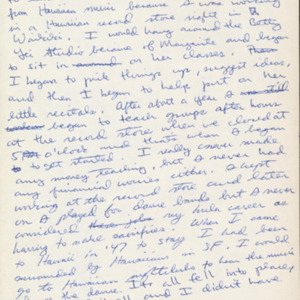 from Hawaiian music because I was working
in a Hawaiian record store right in
Waikiki. I would hang around the Betty
Lei Studio because of Margurite and began
to sit in around on her classes.
I began to pick things up, suggest ideas,
and then I began to help put on her
little recitals. After about a year I
began to teach groups after hours
at the record store when we closed at
o'clock and that's when I began
to get started. I really never made
any money teaching, but I never had
any financial worries either. I kept
working at the record store and later
on I played for dance bands but I never
considered my hula career as
having to make sacrifices. When I came
to Hawaii in '47 to stay I had been
surrounded by Hawaiians in SF. I would
go to Hawaiian nightclubs to hear the music
the dance. It all fell into place,
and I didn't have